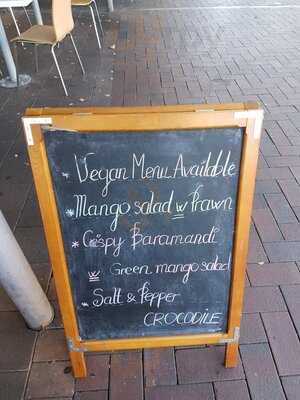 * Vegan Menu Available
* Mango salad w Prawn
* Crispy Baramandi
w Green mango salad
* Salt & Pepper
CROCODILE